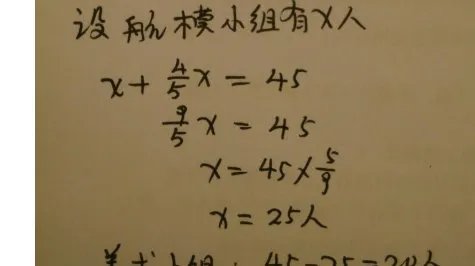 设航模小组有x人
x + 4/5 x = 45
9/5 x = 45
x = 45 × 5/9
x = 25人
美术小组: 45-25=20人